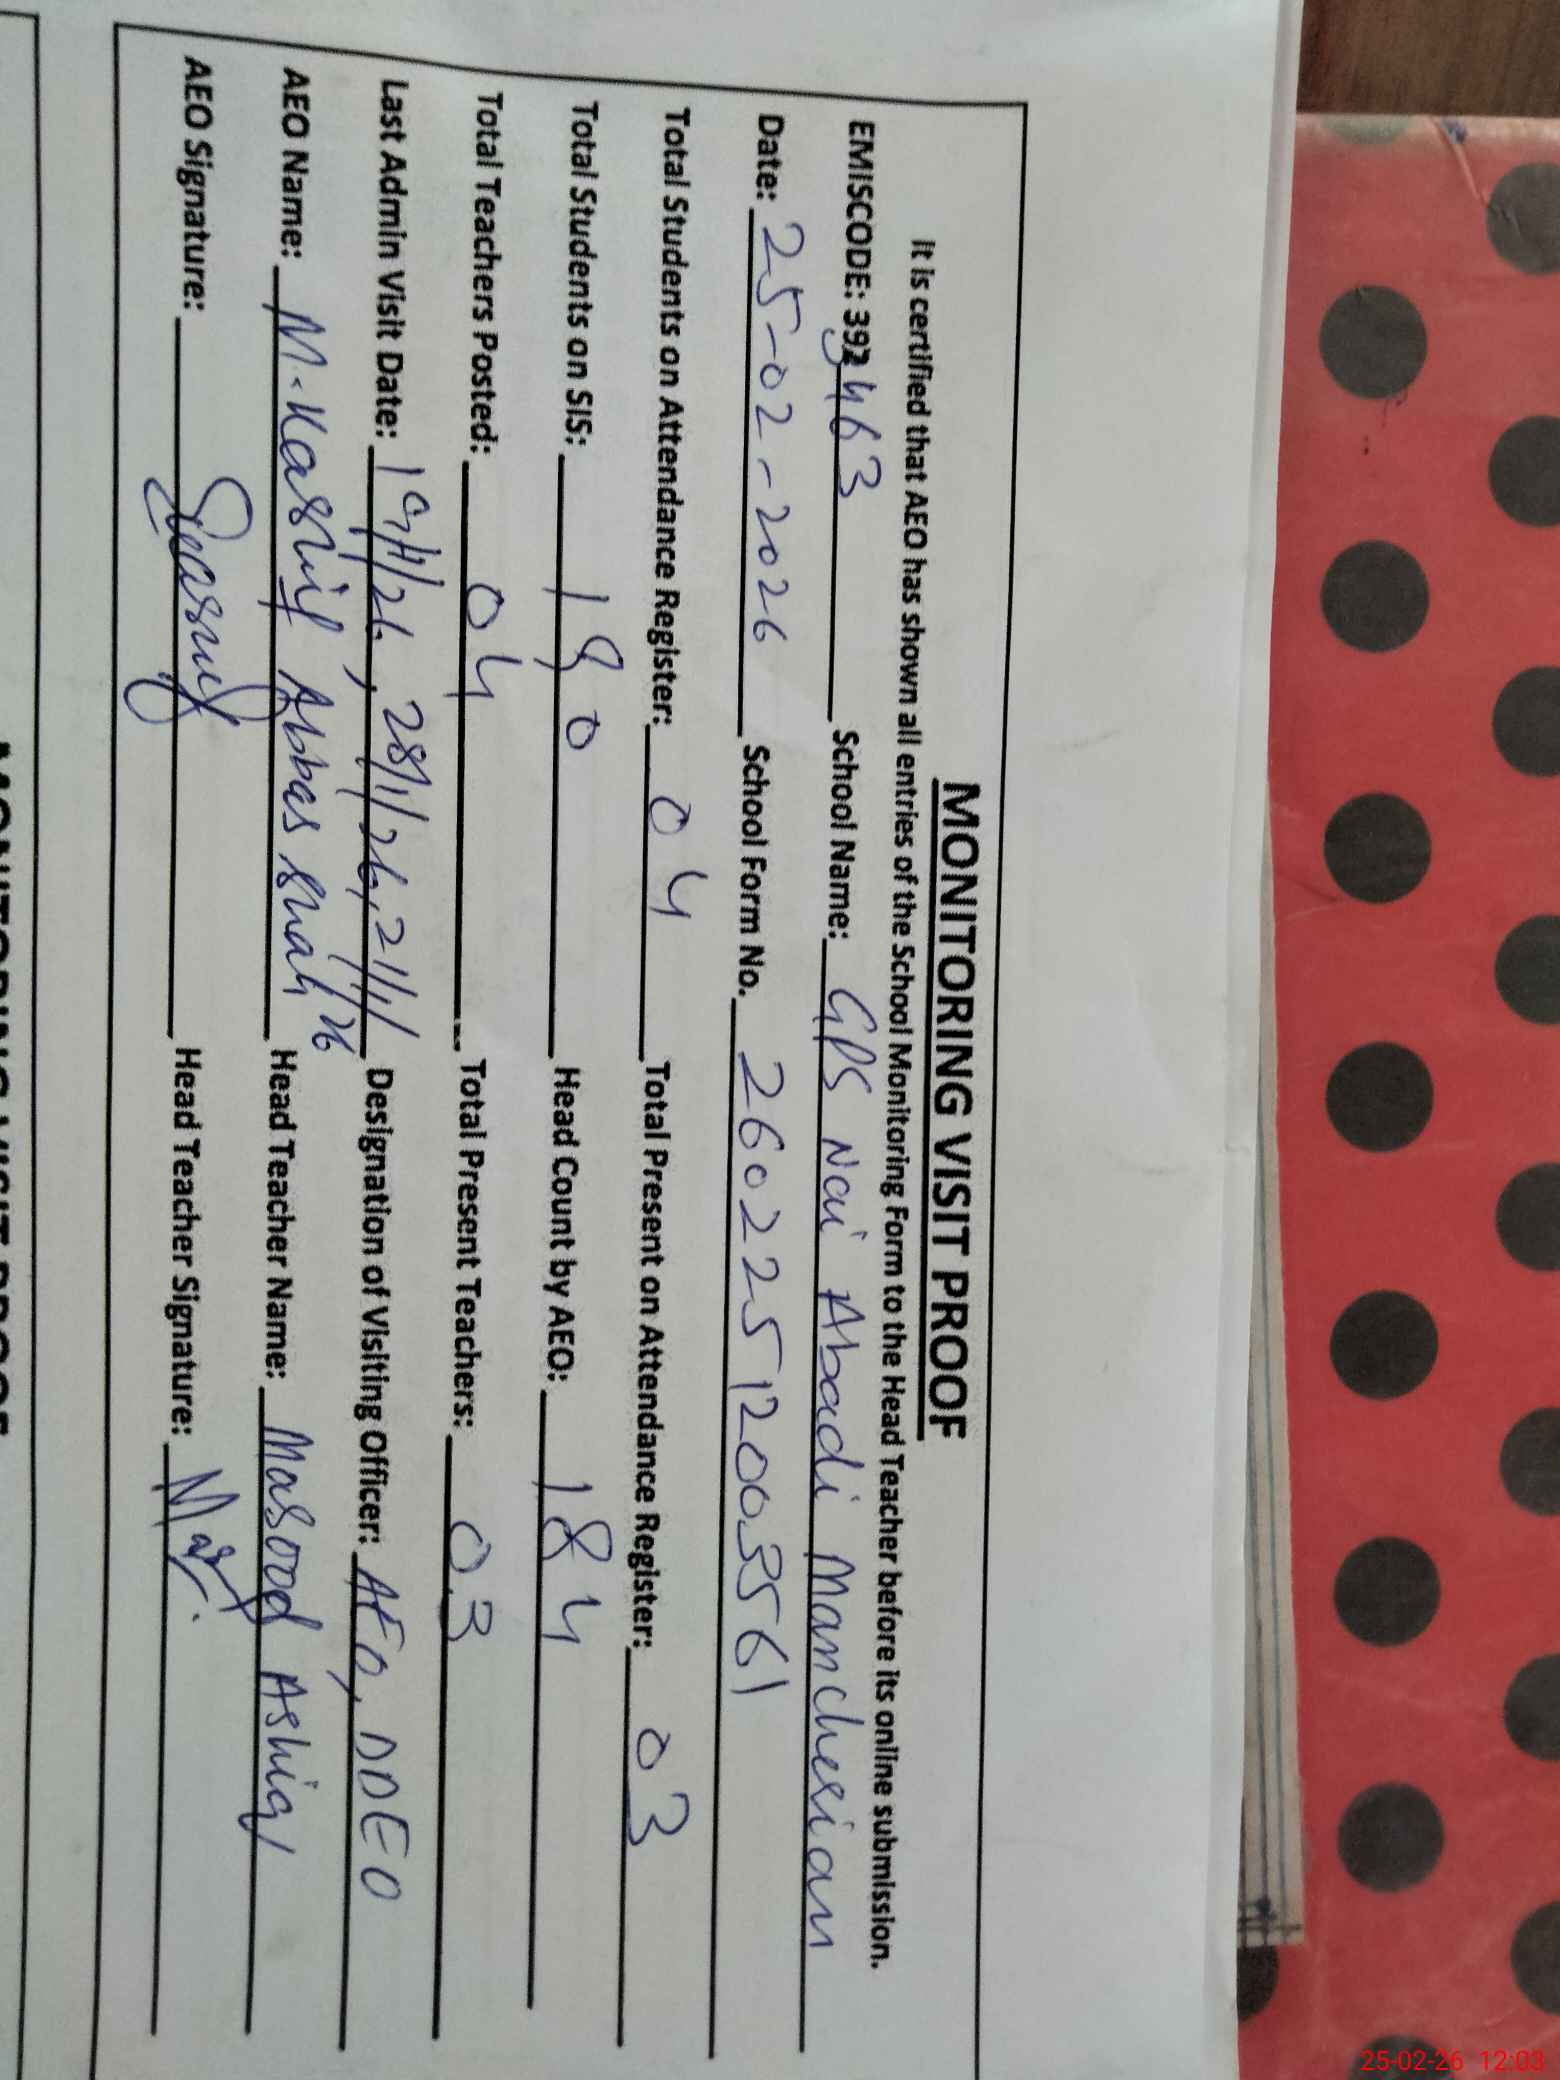 MONITORING VISIT PROOF
It is certified that AEO has shown all entries of the School Monitoring Form to the Head Teacher before its online submission.
EMISCODE: 392 463 School Name: GPS Nai Abadi Mancherian
Date: 25-02-2026 School Form No. 26022512003561
Total Students on Attendance Register: 04 Total Present on Attendance Register: 03
Total Students on SIS: 190 Head Count by AEO: 184
Total Teachers Posted: 04 Total Present Teachers: 03
Last Admin Visit Date: 19/1/26, 28/1/26, 21/1/26 Designation of Visiting Officer: AEO, DDEO
AEO Name: M. Kashif Abbas Shah Head Teacher Name: Masood Ashiq
AEO Signature: Head Teacher Signature:
MONITORING VISIT PROOF
25-02-26 12:03